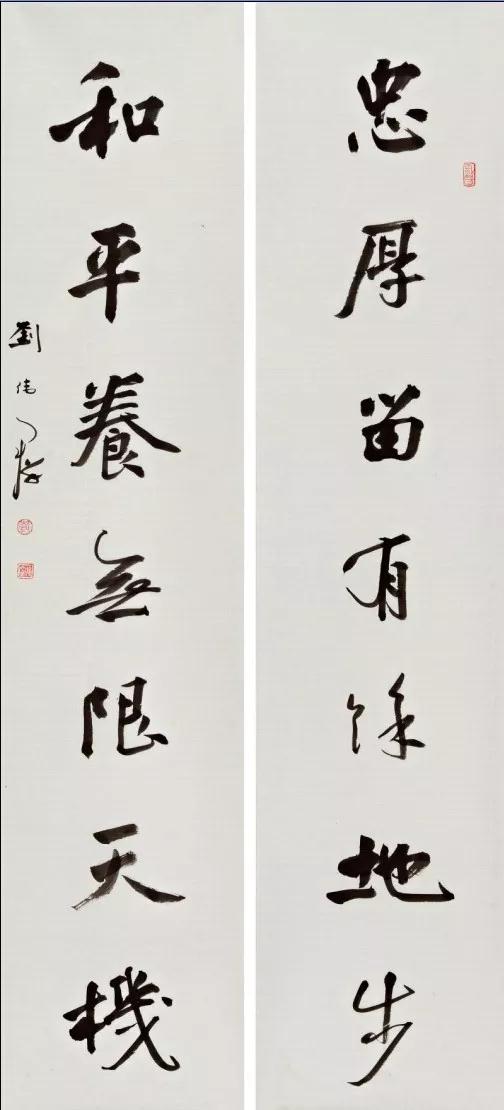 忠厚留有餘地步
和平養無限天機
劉伟